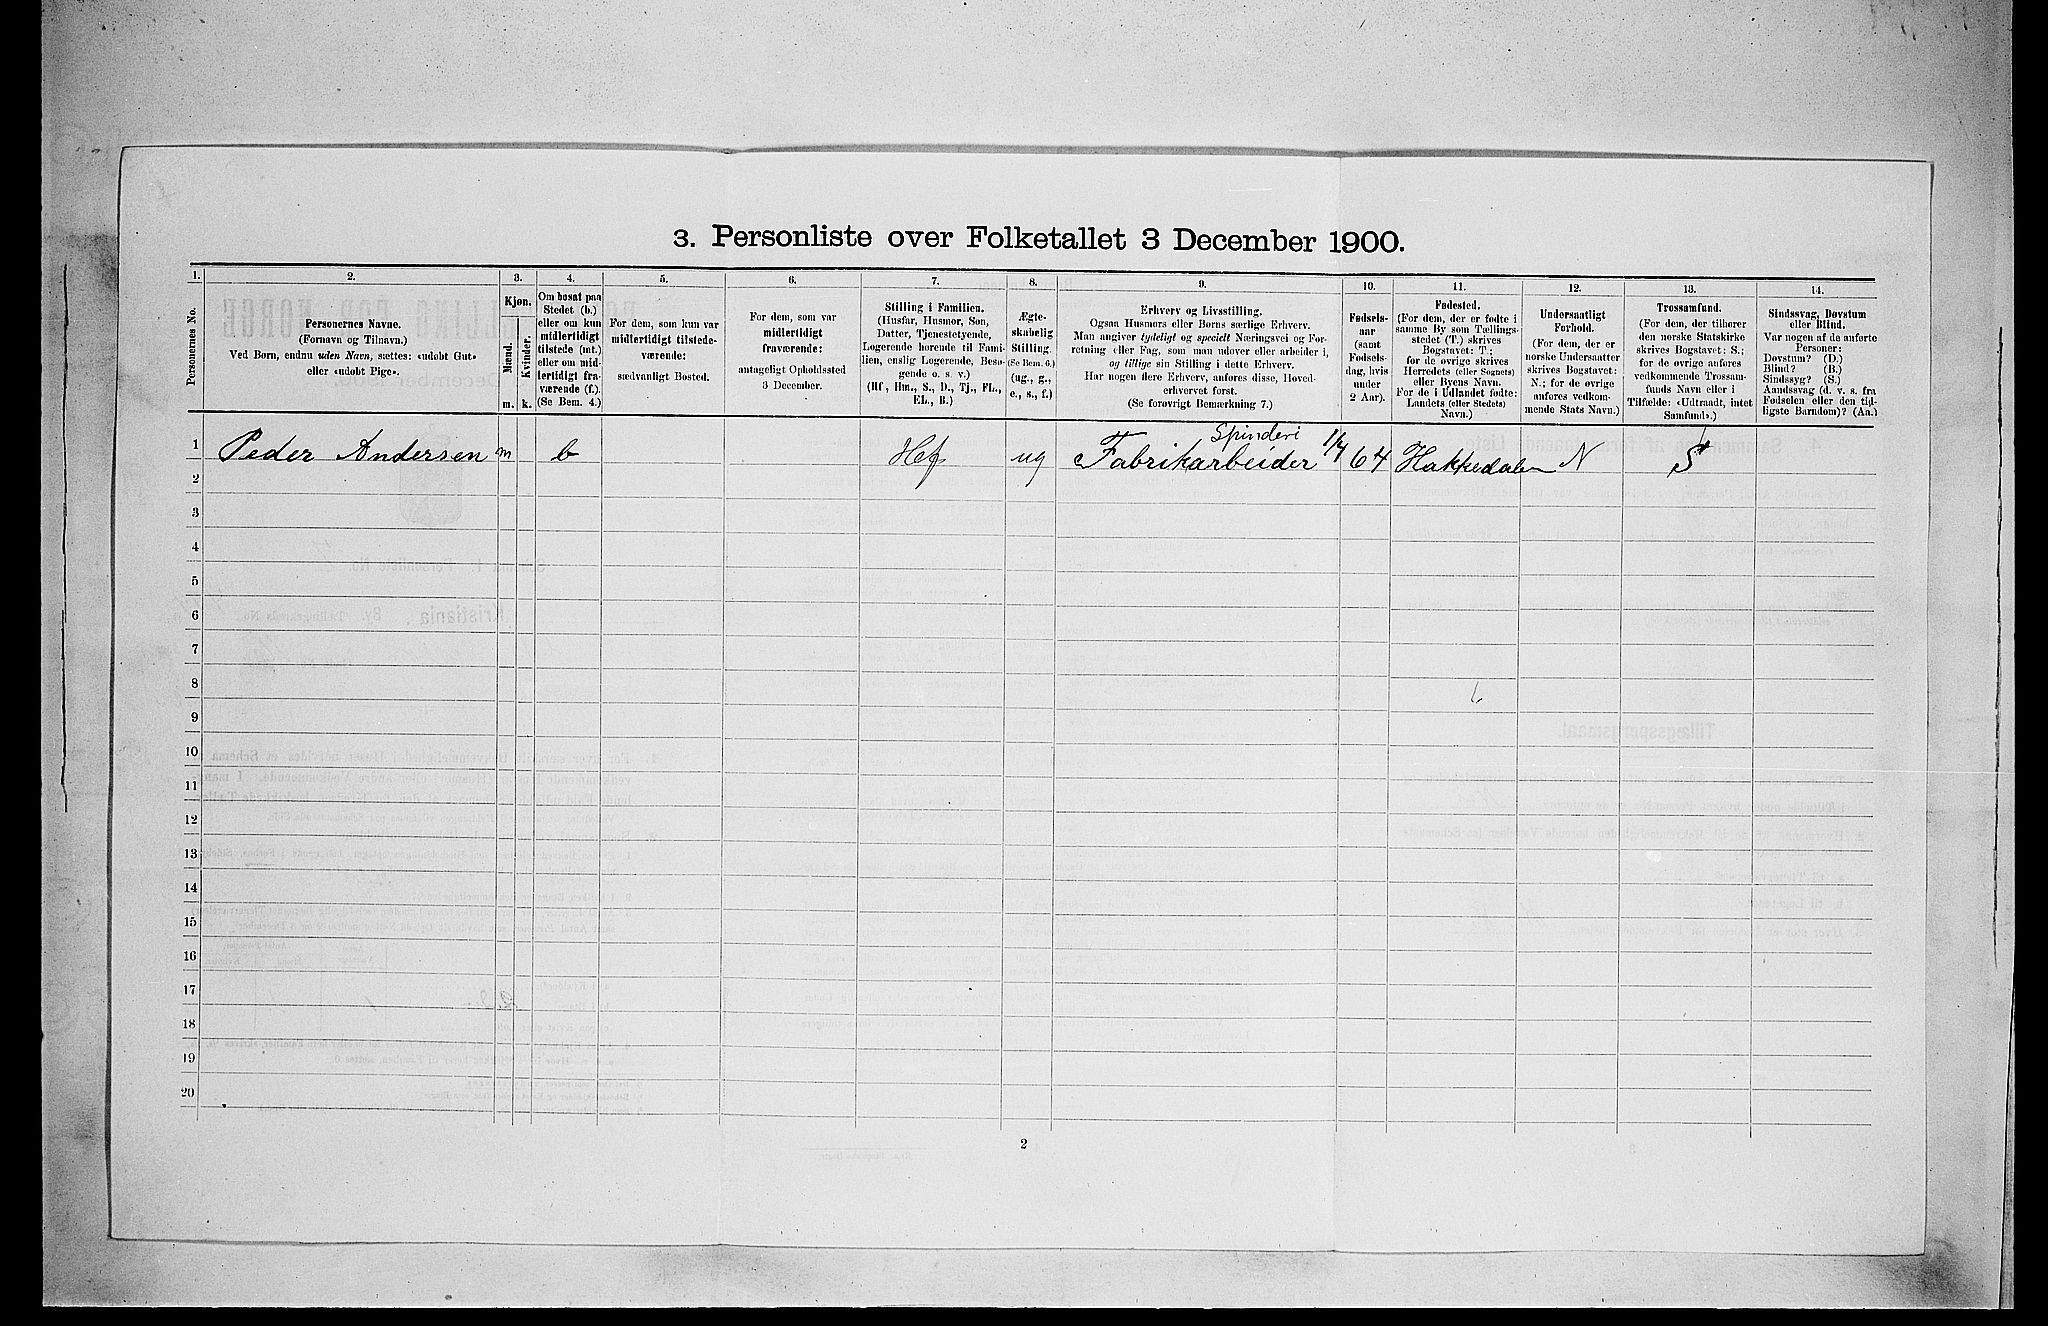 3. Personliste over Folketallet 3 December 1900.
1.
Personernes No.
2.
Personernes Navne.
(Fornavn og Tilnavn.)
Ved Børn, endnu uden Navn, sættes: «udøbt Gut»
eller «udøbt Pige».
3.
Kjøn.
Mænd.
Kvinder.
m.
k.
4.
Om bosat paa
Stedet (b.)
eller om kun
midlertidigt
tilstede (mt.)
eller om mid-
lertidigt fra-
værende (f.)
(Se Bem. 4.)
5.
For dem, som kun var
midlertidigt tilstede-
værende:
sædvanligt Bosted.
6.
For dem, som var
midlertidigt
fraværende:
antageligt Opholdssted
3 December.
7.
Stilling i Familien.
(Husfar, Husmor, Søn,
Datter, Tjenestetyende,
Logerende hørende til Fami-
lien, enslig Logerende, Besø-
gende o. s. v.)
(Hf, Hm., S., D., Tj., FL.,
EL., B.)
8.
Ægte-
skabelig
Stilling.
(Se Bem. 6.)
(ug., g.,
e., s., f.)
9.
Erhverv og Livsstilling.
Ogsaa Husmors eller Børns særlige Erhverv.
Man angiver tydeligt og specielt Næringsvei og For-
retning eller Fag, som man udøver eller arbeider i,
og tillige sin Stilling i dette Erhverv.
Har nogen flere Erhverv, anføres disse, Hoved-
erhvervet først.
(Se forøvrigt Bemærkning 7.)
10.
Fødsels-
aar
(samt
Fødsels-
dag, hvis
under
2 Aar).
11.
Fødested.
(For dem, der er fødte i
samme By som Tællings-
stedet (T.) skrives
Bogstavet: T.;
for de øvrige skrives
Herredets (eller Sognets)
eller Byens Navn.
For de i Udlandet fødte:
Landets (eller Stedets)
Navn.)
12.
Undersaatligt
Forhold.
(For dem, der er
norske Undersaatter
skrives Bogstavet:
N.; for de øvrige
anføres vedkom-
mende Stats Navn.)
13.
Trossamfund.
(For dem, der tilhører
den norske Statskirke
skrives Bogstavet: S.;
for de øvrige anføres
vedkommende Trossam-
funds Navn eller i
Tilfælde: «Udtraadt, intet
Samfund».)
14.
Sindssvag, Døvstum
eller Blind.
Var nogen af de anførte
Personer:
Døvstum? (D.)
Blind? (B.)
Sindssyg? (S.)
Aandssvag (d. v. s. fra
Fødselen eller den tid-
ligste Barndom)? (Aa.)
1 Peder Andersen m b Hf ug Spinderi
Fabrikarbeider 1/7 64 Hakkedalen N S
2
3
4
5
6
7
8
9
10
11
12
13
14
15
16
17
18
19
20
2